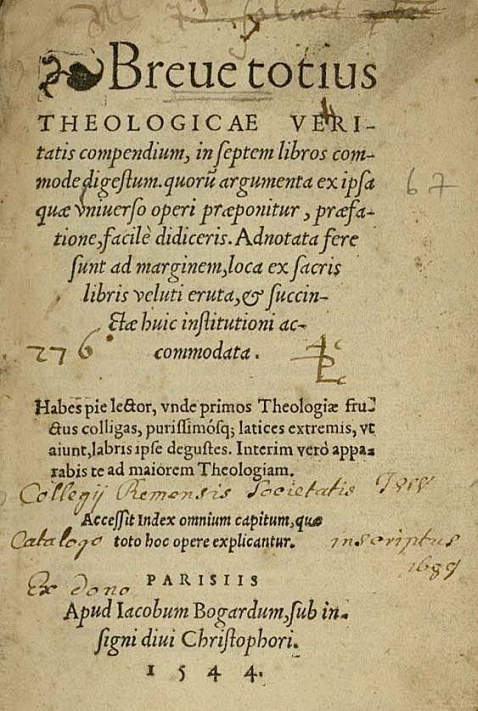 Breue totius
THEOLOGICAE VERI-
tatis compendium, in septem libros com-
mode digestum. quorũ argumenta ex ipsa
quæ vniuerso operi præponitur, præfa-
tione, facilè didiceris. Adnotata fere
sunt ad marginem, loca ex sacris
libris veluti eruta, & succin-
ctæ huic institutioni ac-
commodata.
67
276
Habes pie lector, vnde primos Theologiæ fru-
ctus colligas, purissimósq; latices extremis, vt
aiunt, labris ipse degustes. Interim verò appa-
rabis te ad maiorem Theologiam.
Collegij Remensis Societatis
Accessit Index omnium capitum, quæ
Catalogo toto hoc opere explicantur. inscriptus
Ex dono
PARISIIS
Apud Iacobum Bogardum, sub in-
signi diui Christophori.
1544.